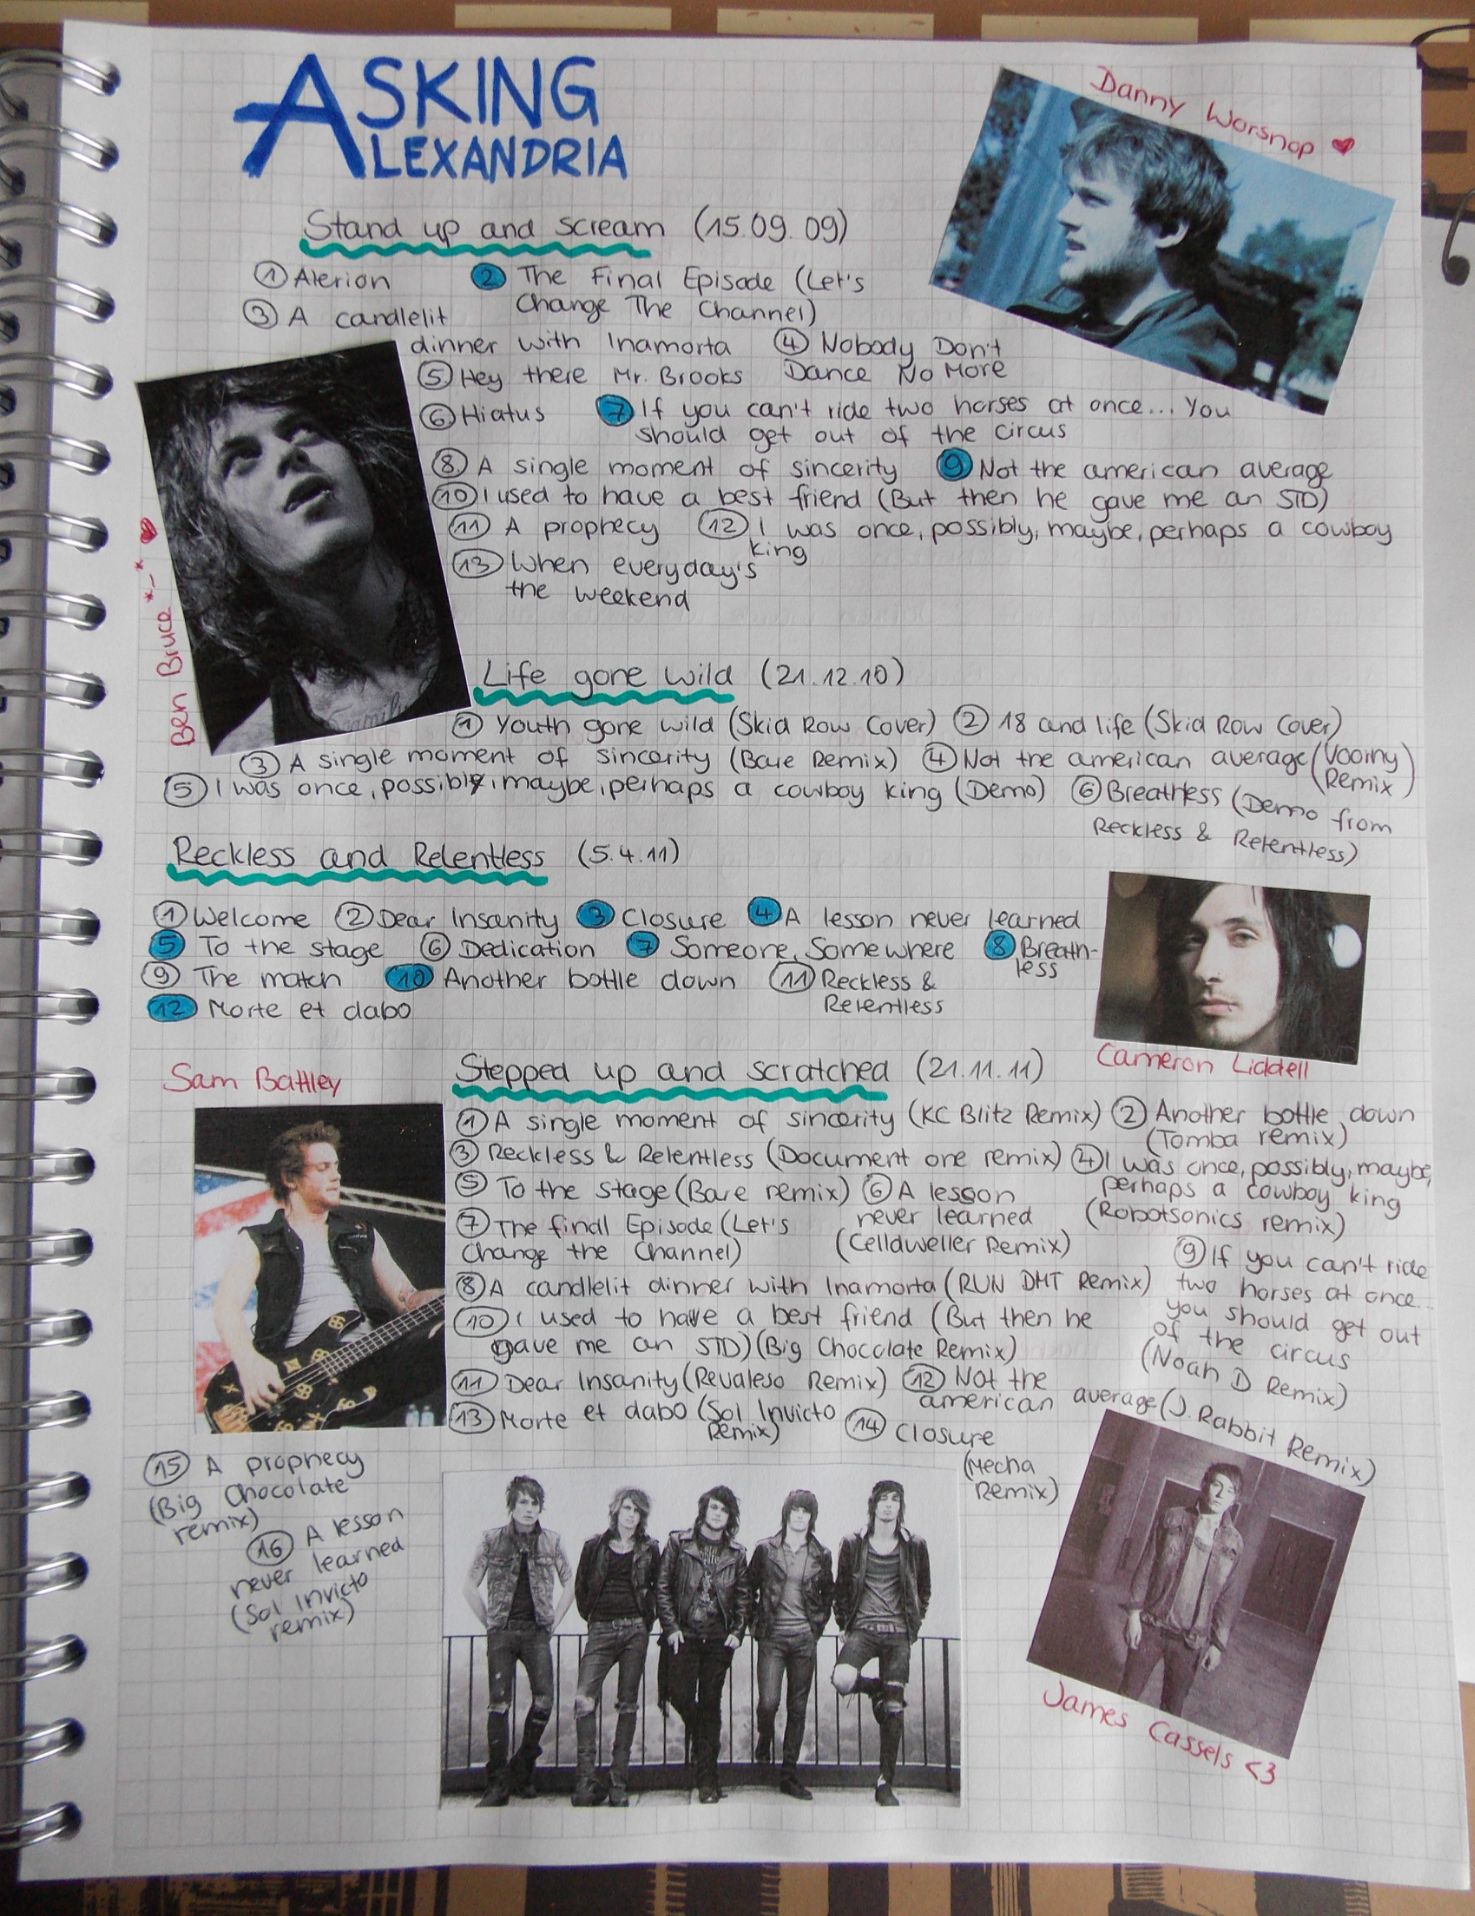 ASKING
ALEXANDRIA
Danny Worsnop ♥
Stand up and scream (15.09.09)
① Alerion ② The Final Episode (Let's
Change The Channel)
③ A candlelit
dinner with Inamorta ④ Nobody Don't
Dance No More
⑤ Hey there Mr. Brooks
⑥ Hiatus ⑦ If you can't ride two horses at once... You
should get out of the circus
⑧ A single moment of sincerity ⑨ Not the american average
⑩ I used to have a best friend (But then he gave me an STD)
⑪ A prophecy ⑫ I was once, possibly, maybe, perhaps a cowboy
king
⑬ When everyday's
the weekend
Ben Bruce *-* ♥
Life gone wild (21.12.10)
① Youth gone wild (Skid Row Cover) ② 18 and life (Skid Row Cover)
③ A single moment of sincerity (Bare Remix) ④ Not the american average (Voorny
Remix)
⑤ I was once, possibly, maybe, perhaps a cowboy king (Demo) ⑥ Breathless (Demo from
Reckless & Relentless)
Reckless and Relentless (5.4.11)
① Welcome ② Dear Insanity ③ Closure ④ A lesson never learned
⑤ To the stage ⑥ Dedication ⑦ Someone, Somewhere ⑧ Breath-
less
⑨ The match ⑩ Another bottle down ⑪ Reckless &
Relentless
⑫ Morte et dabo
Cameron Liddell
Sam Battley
Stepped up and scratched (21.11.11)
① A single moment of sincerity (KC Blitz Remix) ② Another bottle down
(Tomba remix)
③ Reckless & Relentless (Document one remix) ④ I was once, possibly, maybe,
perhaps a cowboy king
(Robotsonics remix)
⑤ To the stage (Bare remix) ⑥ A lesson
never learned
(Celldweller Remix)
⑦ The final Episode (Let's
Change the Channel)
⑧ A candlelit dinner with Inamorta (RUN DMT Remix)
⑨ If you can't ride
two horses at once...
you should get out
of the circus
(Noah D Remix)
⑩ I used to have a best friend (But then he
gave me an STD) (Big Chocolate Remix)
⑪ Dear Insanity (Revaleso Remix) ⑫ Not the
american average (J. Rabbit Remix)
⑬ Morte et dabo (Sol Invicto
Remix)
⑭ Closure
(Mecha
Remix)
⑮ A prophecy
(Big Chocolate
remix)
⑯ A lesson
never learned
(Sol Invicto
remix)
James Cassels <3